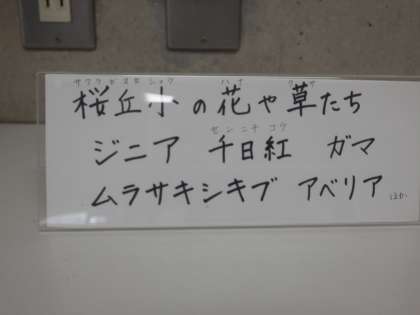 サクラガオカショウ ハナ クサ
桜丘小の花や草たち
センニチコウ
ジニア 千日紅 ガマ
ムラサキシキブ アベリア ほか